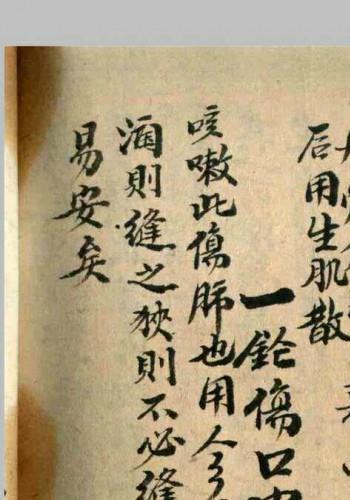 后用生肌散
一鎗傷口
咳嗽此傷肺也用人
濶則縫之狹則不必縫
易安矣